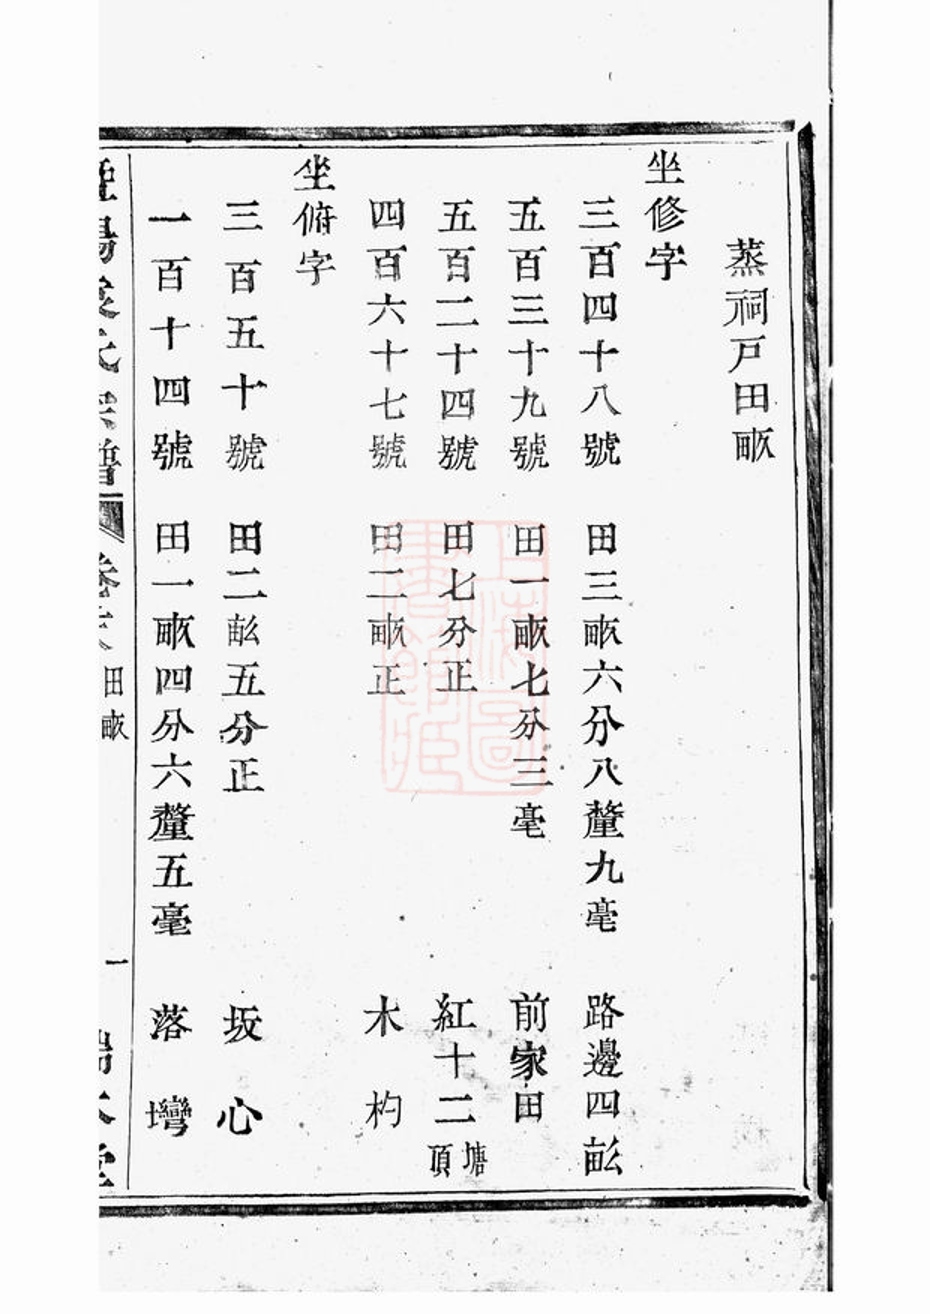 蒸祠戸田畝
坐修字
三百四十八號 田三畝六分八釐九亳 路邊四畝
五百三十九號 田一畝七分三亳 前家田
五百二十四號 田七分正 紅十二塘頂
四百六十七號 田二畝正 木杓
坐俯字
三百五十號 田二畝五分正 坂心
一百十四號 田一畝四分六釐五毫 落壪
田畝
一